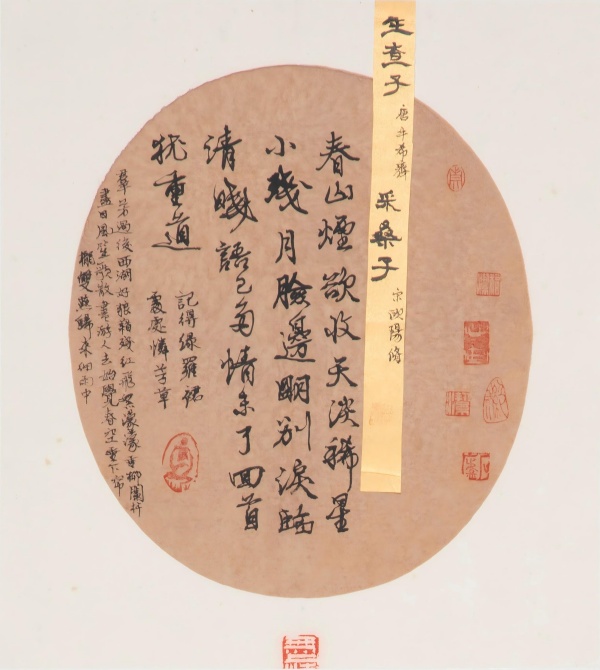 生查子
唐牛希濟
采桑子
宋歐陽修
春山煙欲收天淡稀星
小殘月臉邊明別淚臨
清曉語已多情未了回首
猶重道
記得綠羅裙
處處憐芳草
羣芳過後西湖好狼籍殘紅飛絮濛濛垂柳闌杆
盡日風笙歌散盡游人去始覺春空垂下帘
櫳雙燕歸來細雨中